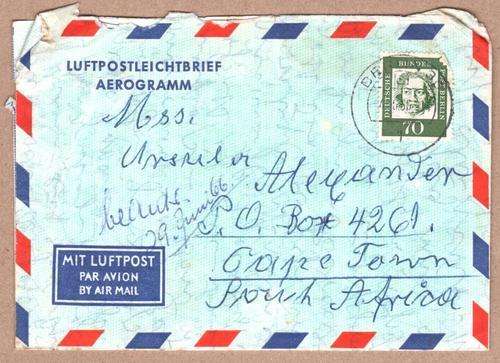 LUFTPOSTLEICHTBRIEF
AEROGRAMM
DEUTSCHE BUNDESPOST BERLIN
70
Mss.
Ursula Alexander
P. O. Box 4261.
29. Juni 66
Cape Town
South Africa
MIT LUFTPOST
PAR AVION
BY AIR MAIL